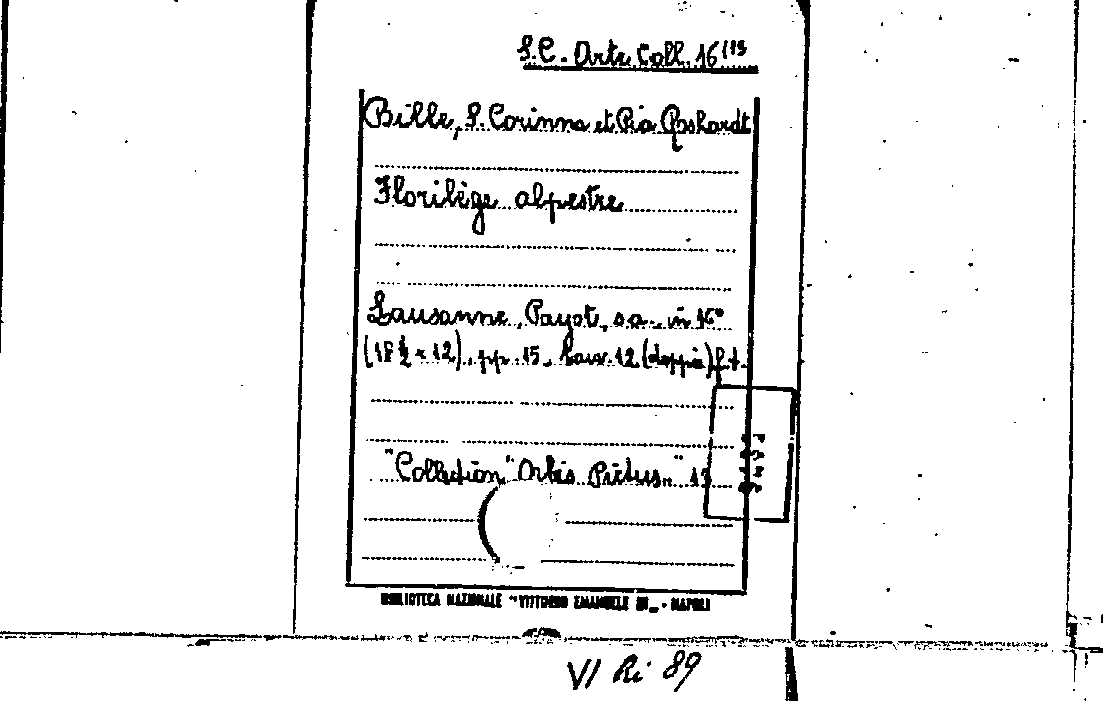 S.C. Arte Coll. 16/13
Bille, S. Corinna et Pia Roshardt
Florilège alpestre
Lausanne, Payot, s.a., in 16°
(18 ½ x 12), pp. 15, tav. 12 (doppie) f.t.
"Collection "Orbis Pictus" 13
BIBLIOTECA NAZIONALE "VITTORIO EMANUELE III" - NAPOLI
VI Ri 89